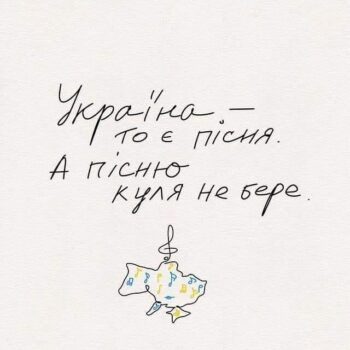 Україна –
то є пісня.
А пісню
куля не бере.